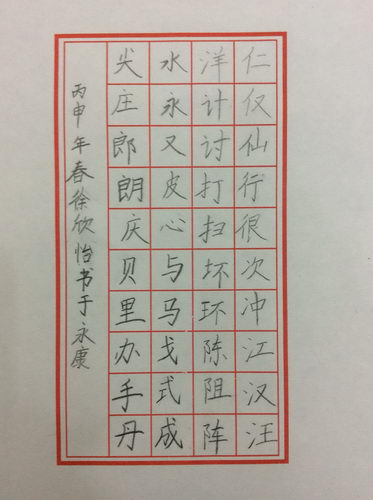 仁仅仙行很次冲江汉汪
洋计讨打扫坏环陈阻阵
水永又皮心与马戈式成
尖庄郎朗庆贝里办手丹
丙申年春徐欣怡书于永康